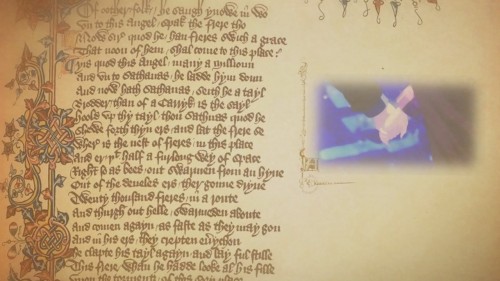 Of oother folk, he saugh ynowe in wo
Vn to this angel, spak the frere tho
Now sir quod he, han freres swich a grace
That noon of hem, shal come to this place
Yis quod this Angel, many a millioun
And vn to sathanas, he ladde hym doun
And now hath sathanas, seith he a tayl
Brodder than of a Carryk is the sayl
Hoold vp thy tayl thou sathanas quod he
Shewe forth thyn ers, and lat the frere se
Wher is the nest of freres, in this place
And er þt half a furlong wey of space
Right so as bees, out swarmen from an hyue
Out of the deueles ers, ther gonne dryue
Twenty thousand freres, in a route
And thurgh out helle, swarmeden aboute
And comen agayn, as faste as they may gon
And in his ers, they crepten euychon
He clapte his tayl agayn, and lay ful stille
This frere, whan he hadde looke al his fille
Vpon the tormentz of this sory place